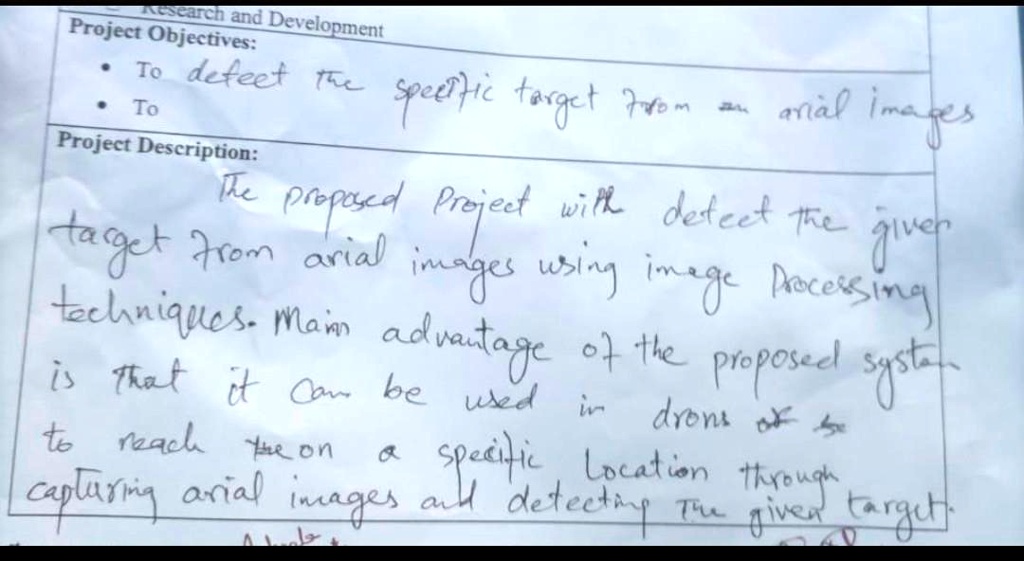 Research and Development
Project Objectives:
• To detect the specific target from an arial images
• To
Project Description:
The proposed Project will detect the given
target from arial images using image Processing
techniques. Main advantage of the proposed system
is that it can be used in drons
to reach on a specific Location through
capturing arial images and detecting The given target.